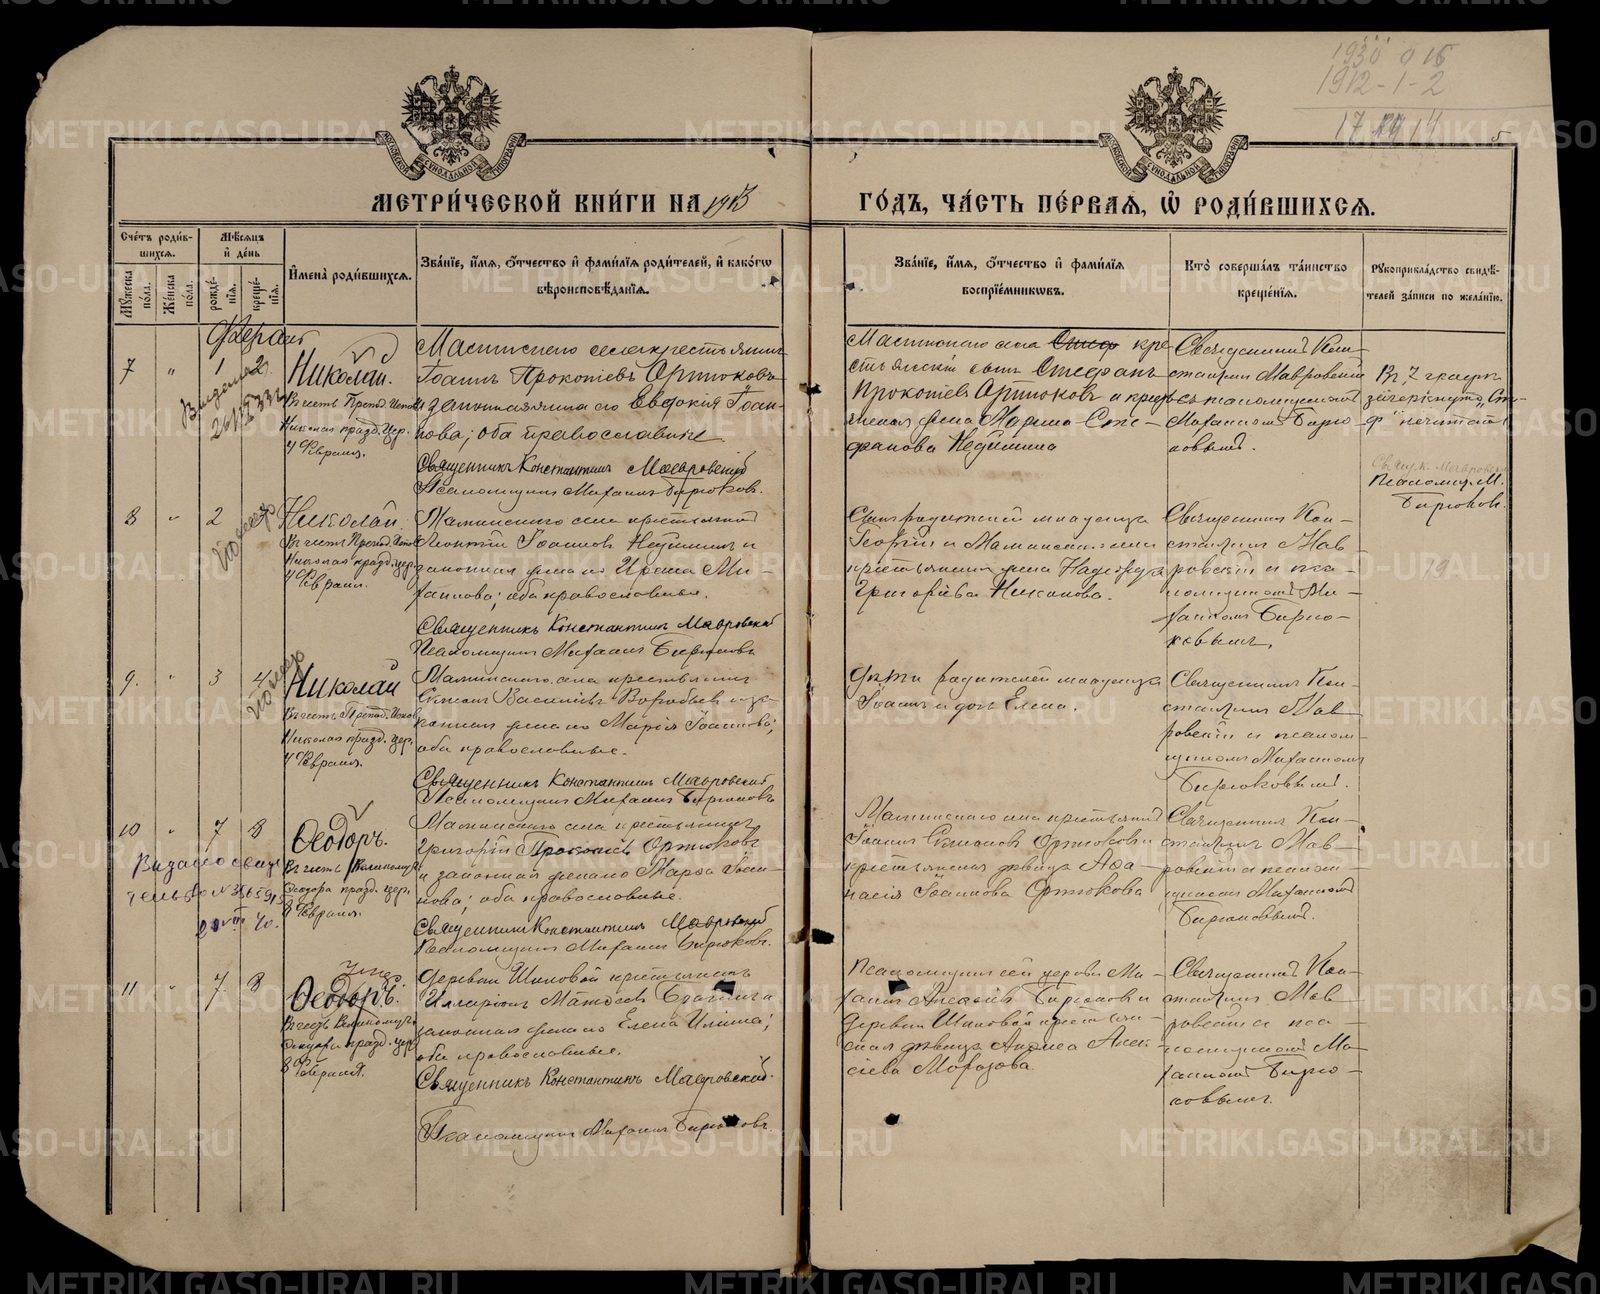 1930 0 15
1912 - 1 - 2
17 14
5
МОСКОВСКОЙ СѴНОДАЛЬНОЙ ТИПОГРАФІИ
МОСКОВСКОЙ СѴНОДАЛЬНОЙ ТИПОГРАФІИ
МЕТРИ́ЧЕСКОЙ КНИ́ГИ НА 1913
ГО́ДЪ, ЧА́СТЬ ПЕ́РВАЯ, Ѡ҆ РОДИ́ВШИХСЯ.
Сче́тъ роди́в-
шихся.
Мꙋжеска по́ла.
Же́нска по́ла.
Мѣ́сяцъ
и҆ де́нь
рожде́-
нїя.
креще́-
нїя.
И҆мена̀ роди́вшихся.
Зва́нїе, и҆́мя, ѻ҆́тчество и҆ фами́лїя роди́телей, и҆ како́гѡ
вѣроисповѣ́данїя.
Зва́нїе, и҆́мя, ѻ҆́тчество и҆ фами́лїя
воспрїе́мникѡвъ.
Кто̀ соверша́лъ та́инство
креще́нїя.
Рꙋкоприкла́дство свидѣ́-
телей за́писи по жела́нїю.
Февраль
7 " 1 2
Николай.
Въ честь Препод. Испов.
Николая празд. цер.
4 Февраля.
Маминскаго села крестьянинъ
Іоаннъ Прокопіевъ Ортюковъ
и законная жена его Евдокія Іоан-
нова; оба православные.
Священникъ Константинъ Мавровскій
Псаломщикъ Михаилъ Бирюковъ.
Маминскаго села кре-
стьянскій сынъ Стефанъ
Прокопіевъ Ортюковъ и кресть-
янская жена Марѳа Сте-
фанова
Священникъ Кон-
стантинъ Мавровскій
съ псаломщикомъ
Михаиломъ Бирю-
ковымъ.
Въ 7 графѣ
зачеркнуто „Сте-
ф" не читать
Священ. К. Мавровскій
Псаломщ. М.
Бирюковъ.
8 " 2
Николай.
Въ честь Препод. Испов.
Николая празд. цер.
4 Февраля.
Маминскаго села крестьянинъ
Леонтій Іоанновъ и
законная жена его Ирина Ми-
хаилова; оба православные.
Священникъ Константинъ Мавровскій
Псаломщикъ Михаилъ Бирюковъ
Сынъ родителей младенца
Георгій и Маминскаго села
крестьянская жена Надежда
Григорьева Никонова.
Священникъ Кон-
стантинъ Мав-
ровскій и пса-
ломщикъ Ми-
хаиломъ Бирю-
ковымъ.
9. " 3 4
Николай
Въ честь Препод. Испов.
Николая празд. цер.
4 Февраля.
Маминскаго села крестьянинъ
Симеонъ Васильевъ Воробьевъ и за-
конная жена его Марія Іоаннова;
оба православные.
Священникъ Константинъ Мавровскій
Псаломщикъ Михаилъ Бирюковъ
Дѣти родителей младенца
Іоаннъ и дочь Елена.
Священникъ Кон-
стантинъ Мав-
ровскій и псалом-
щикомъ Михаиломъ
Бирюковымъ.
10 " 7 8
Ѳеодоръ.
Въ честь Великомуч.
Ѳеодора празд. цер.
8 Февраля.
Маминскаго села крестьянинъ
Григорій Прокопіевъ Ортюковъ
и законная жена его Марѳа Іоан-
нова; оба православные.
Священникъ Константинъ Мавровскій
Псаломщикъ Михаилъ Бирюковъ.
Маминскаго села крестьянинъ
Іоаннъ Симеоновъ Ортюковъ и
крестьянская дѣвица Аѳа-
насія Іоаннова Ортюкова
Священникъ Кон-
стантинъ Мав-
ровскій и псалом-
щикомъ Михаиломъ
Бирюковымъ.
11 " 7 8
Ѳеодоръ.
Въ честь Великомуч.
Ѳеодора празд. цер.
8 Февраля.
Деревни Шиловой крестьянинъ
Илларіонъ Матвѣевъ и
законная жена его Елена Ильина;
оба православные.
Священникъ Константинъ Мавровскій.
Псаломщикъ Михаилъ Бирюковъ.
Псаломщикъ сей церкви Ми-
хаилъ Алексѣевъ Бирюковъ и
деревни Шиловой крестьян-
ская дѣвица Анѳиса Алек-
сіева Морозова
Священникъ Кон-
стантинъ Мав-
ровскій и пса-
ломщикомъ Ми-
хаиломъ Бирю-
ковымъ.
METRIKI.GASO-URAL.RU